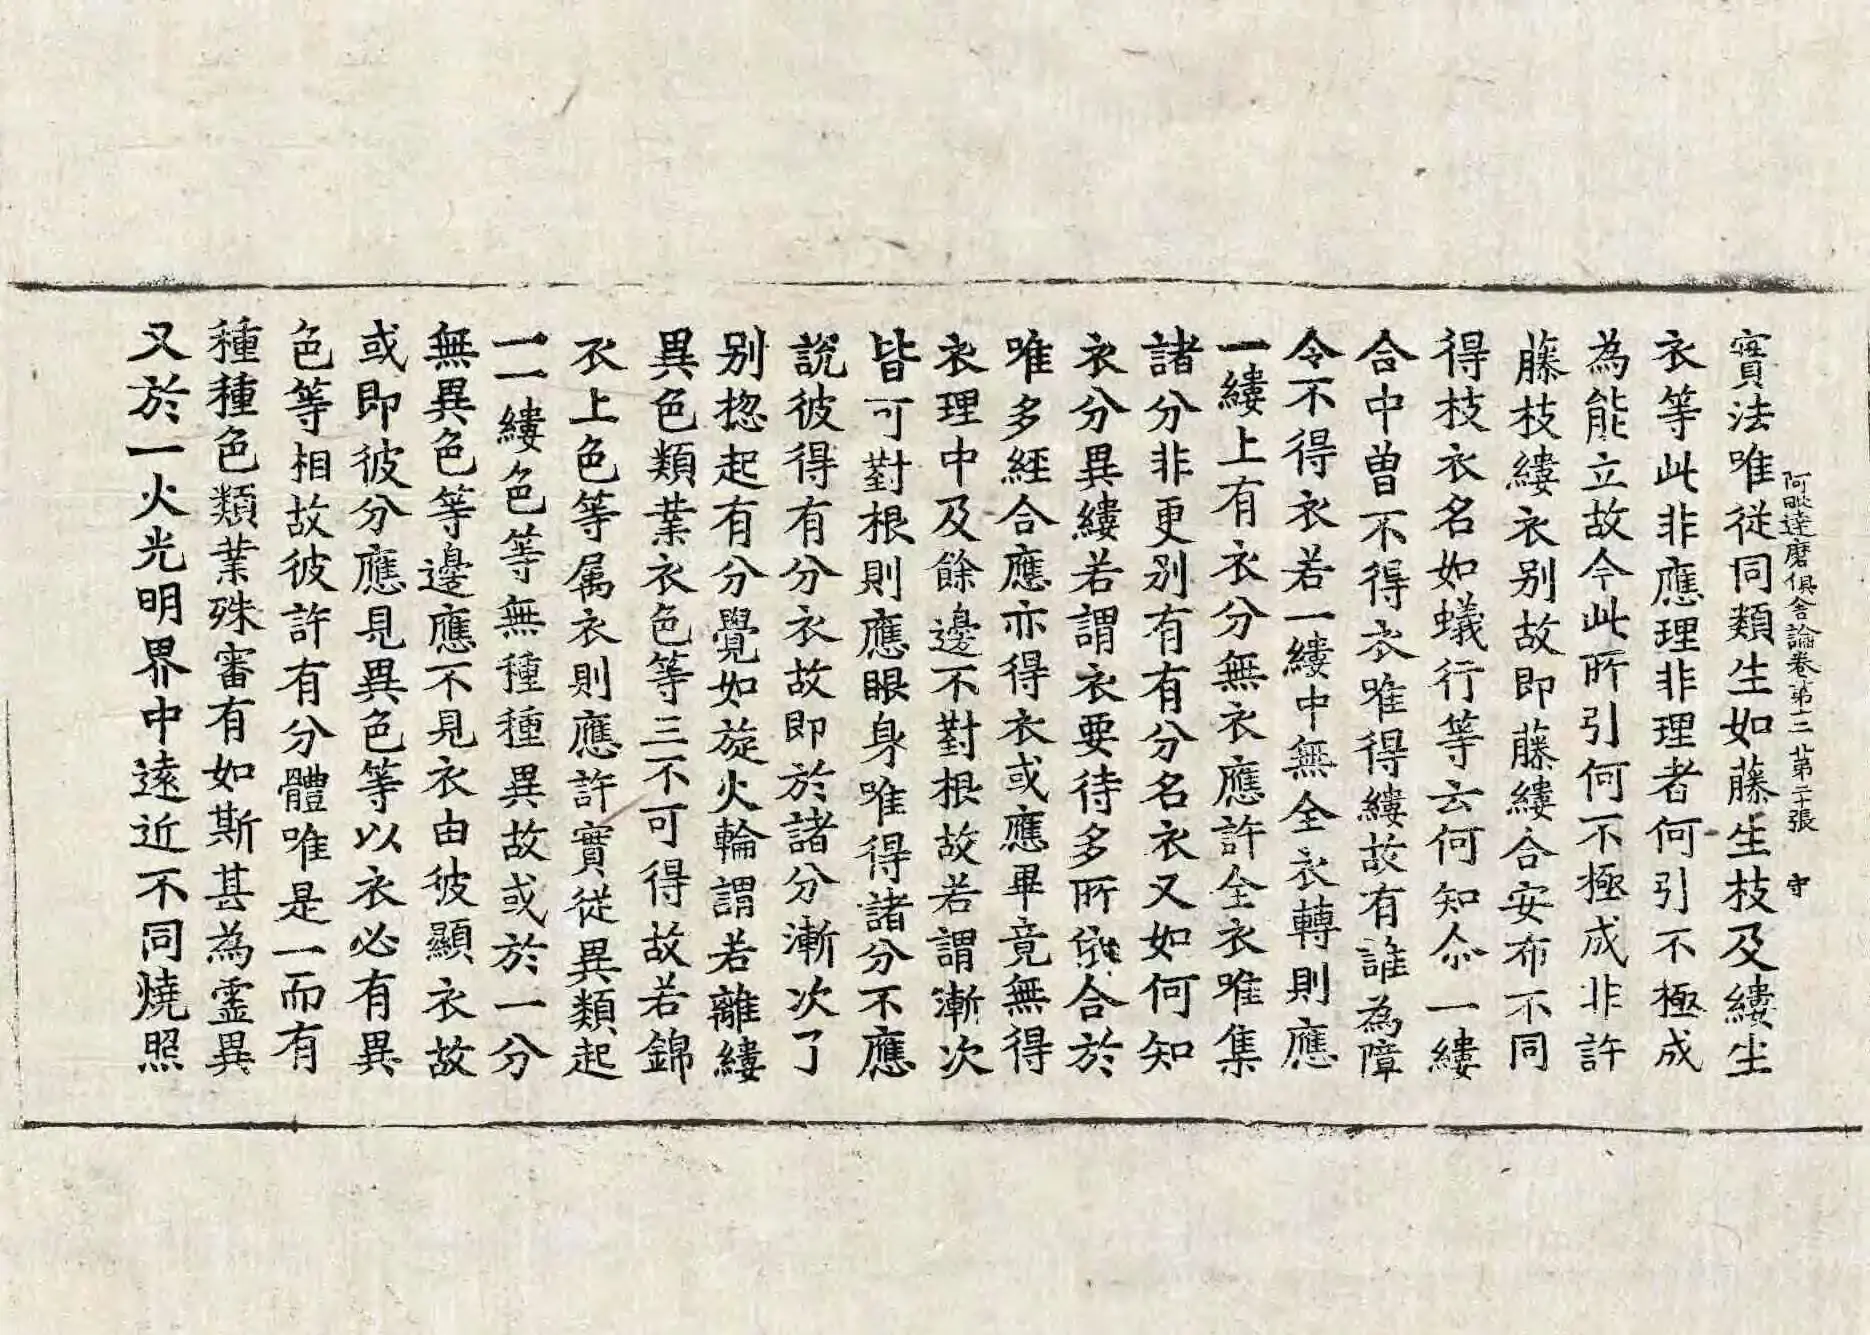 阿毗達磨俱舍論卷第十二 第二十張 守
實法唯從同類生如藤生枝及縷生
衣等此非應理非理者何引不極成
為能立故今此所引何不極成非許
藤枝縷衣別故即藤縷合安布不同
得枝衣名如蟻行等云何知尒一縷
合中曾不得衣唯得縷故有誰為障
令不得衣若一縷中無全衣轉則應
一縷上有衣分無衣應許全衣唯集
諸分非更別有有分名衣又如何知
衣分異縷若謂衣要待多所依合於
唯多經合應亦得衣或應畢竟無得
衣理中及餘邊不對根故若謂漸次
皆可對根則應眼身唯得諸分不應
說彼得有分衣故即於諸分漸次了
別揔起有分覺如旋火輪謂若離縷
異色類業衣色等三不可得故若錦
衣上色等属衣則應許實從異類起
一一縷色等無種種異故或於一分
無異色等邊應不見衣由彼顯衣故
或即彼分應見異色等以衣必有異
色等相故彼許有分體唯是一而有
種種色類業殊審有如斯甚為霊異
又於一火光明界中遠近不同燒照